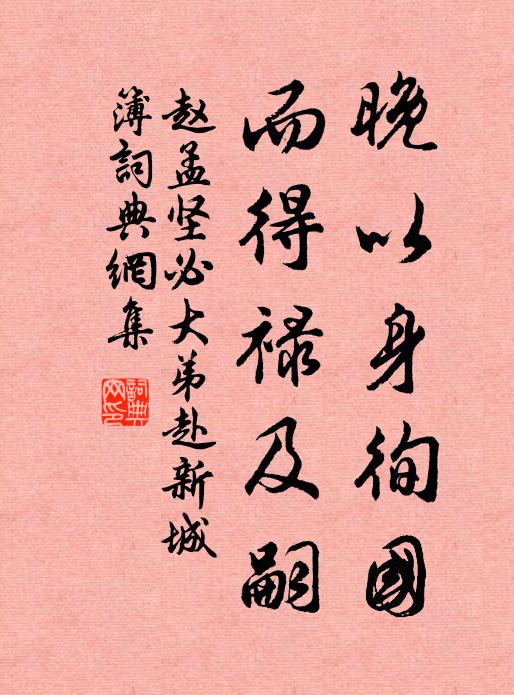 晚以身徇國
而得祿及嗣
赵孟坚必大弟赴新城
簿詞典網集
詞典網印